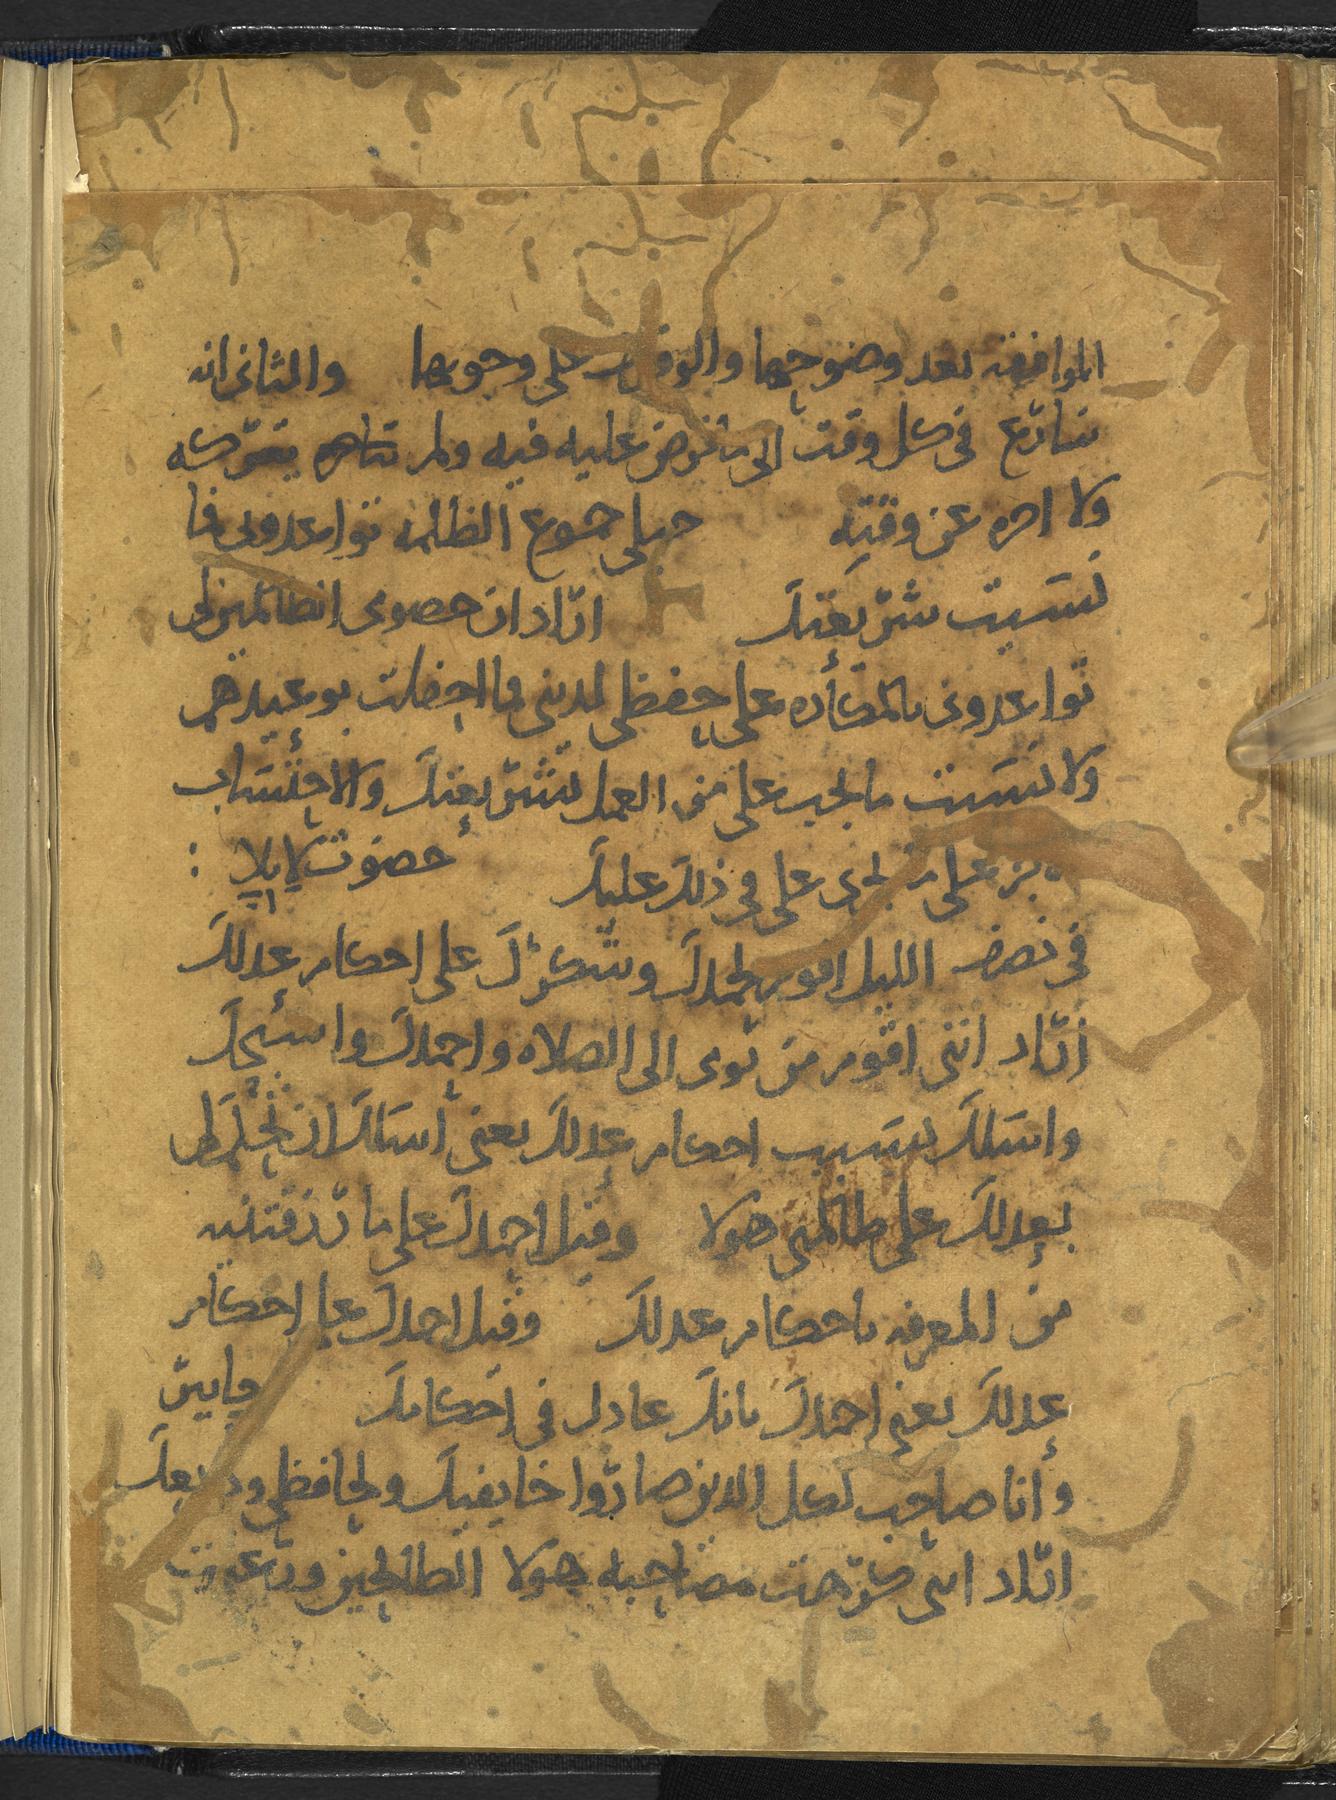 الموافقه بعد وضوحها والوقوف على وجوبها والثانى انه
سارع فى كل وقت الى ما فرض عليه فيه ولم يتركه
ولا اخره عن وقته حبلى جموع الظالمه تواعدونى فما
نسيت شريعتك اراد ان خصومى الظالمين لى
تواعدونى بالمكاره على حفظى لدينى فما احفلت بوعيدهم
ولا نسيت ما يجب على من العمل بشريعتك والاحتساب
على ما يجرى على فى ذلك عليك حضوت لايلا :
فى نصف الليل اقوم لحمدك وشكرك على احكام عدلك
اراد اننى اقوم من نومى الى الصلاه واحمدك واسبحك
واسلك بسبب احكام عدلك يعنى اسلك ان تحكم لى
بعدلك على ظالمى هولا وقيل احمدك على ما رزقتنيه
من المعرفه باحكام عدلك وقيل احمدك على احكام
عدلك يعنى احمدك بانك عادل فى احكامك حابير
وأنا صاحب لكل الذين صاروا خايفيك ولحافظى ودايعك
اراد اننى كرهت مصاحبه هولا الظالمين ورغبت